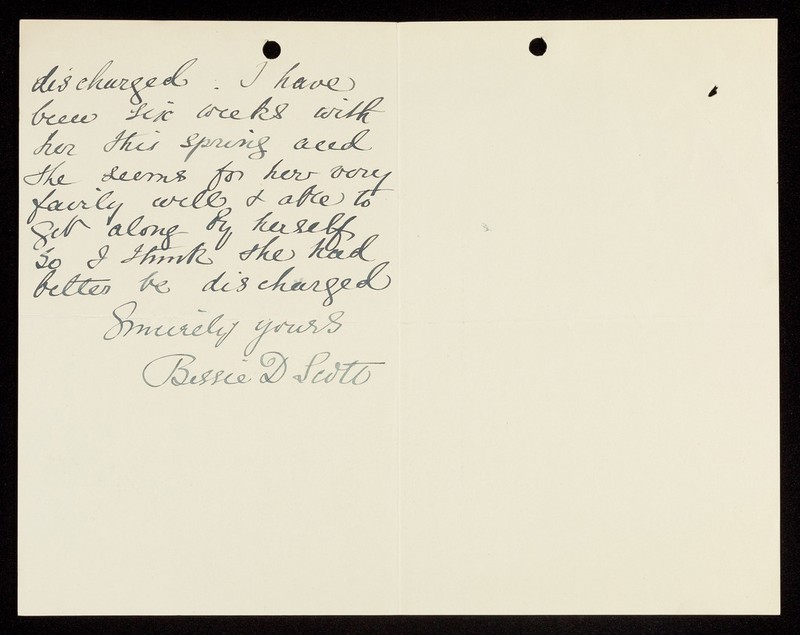 discharged. I have
been six weeks with
her this spring and
she seems for her very
fairly well & able to
get along by herself
So I think she had
better be discharged
Sincerely yours
Bessie D Scott